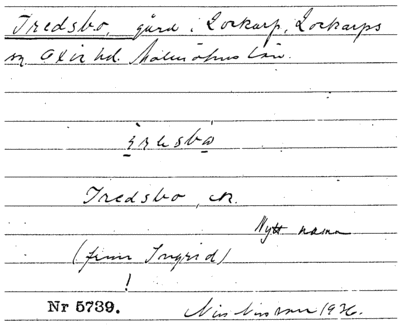 Fredsbo, gård i Lockarp, Lockarps
sn Oxie hd. Malmöhus län.
Fredsbo, n.
Nytt namn
(finns Ingrid)
!
Nr 5739.
Nils Nilsson 1936.